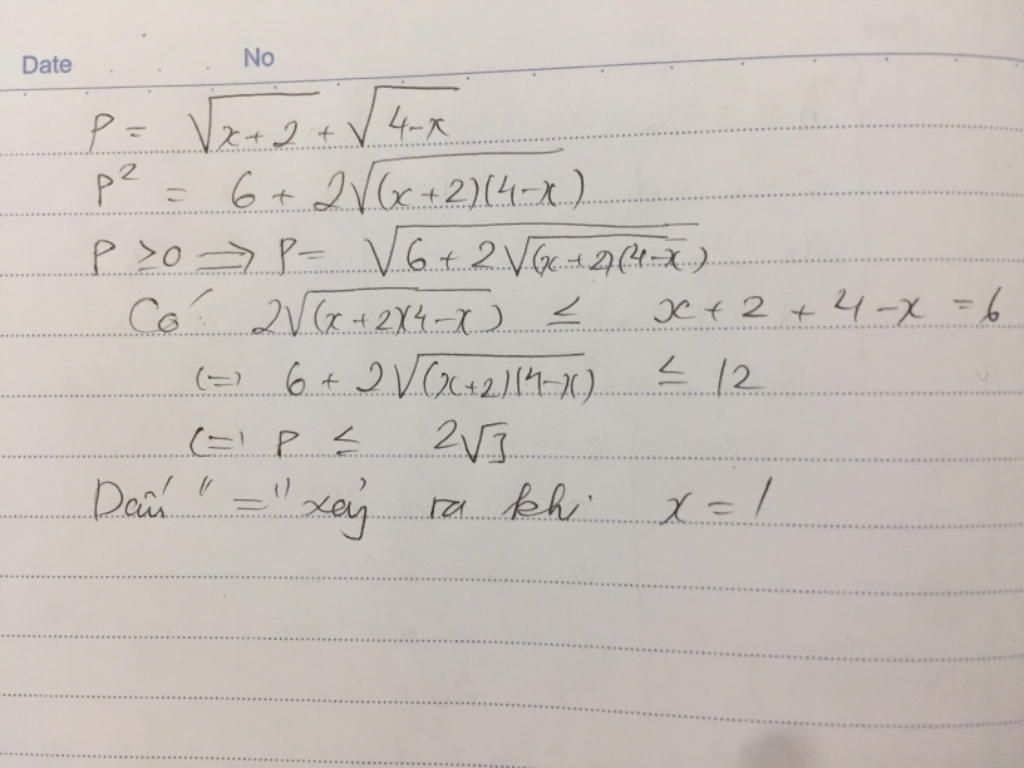 Date No
P = √(x+2) + √(4-x)
P² = 6 + 2√((x+2)(4-x))
P ≥ 0 ⟹ P = √(6 + 2√((x+2)(4-x)))
Có: 2√((x+2)(4-x)) ≤ x + 2 + 4 - x = 6
(=) 6 + 2√((x+2)(4-x)) ≤ 12
(=) P ≤ 2√3
Dấu "=" xảy ra khi x = 1